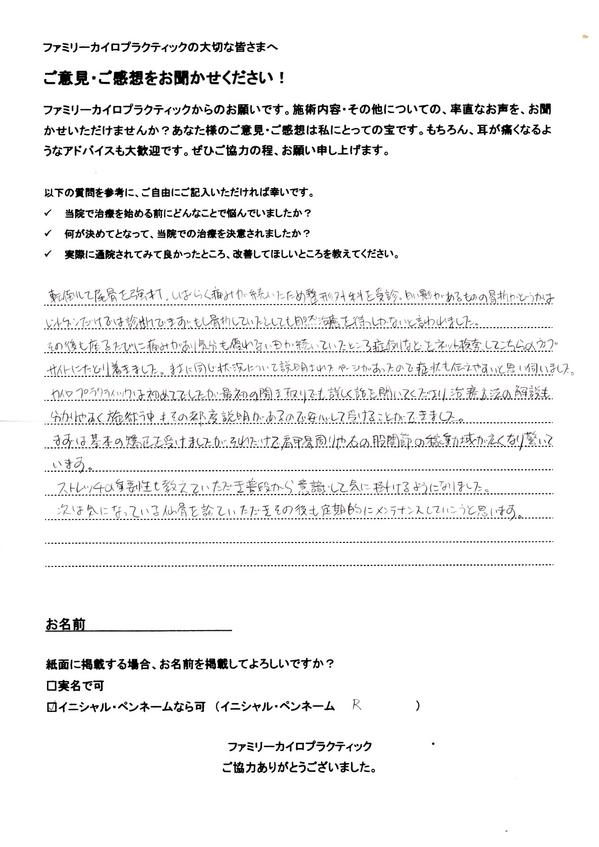 ファミリーカイロプラクティックの大切な皆さまへ
ご意見・ご感想をお聞かせください！
ファミリーカイロプラクティックからのお願いです。施術内容・その他についての、率直なお声を、お聞
かせいただけませんか？あなた様のご意見・ご感想は私にとっての宝です。もちろん、耳が痛くなるよ
うなアドバイスも大歓迎です。ぜひご協力の程、お願い申し上げます。
以下の質問を参考に、ご自由にご記入いただければ幸いです。
✓ 当院で治療を始める前にどんなことで悩んでいましたか？
✓ 何が決めてとなって、当院での治療を決意されましたか？
✓ 実際に通院されてみて良かったところ、改善してほしいところを教えてください。
転倒して尾骨を強打、しばらく痛みが続いたため整形外科を受診。白い影があるものの骨折かどうかは
レントゲンだけでは診断できず、もし骨折していたとしても自然治癒を待つしかないと言われました。
その後も座るたびに痛みがあり気分も優れない日が続いていたところ症例などをネット検索してこちらのウェブ
サイトにたどり着きました。まさに同じ状況について説明されたページがあったので症状も伝えやすいと思い伺いました。
カイロプラクティックは初めてでしたが最初の聞き取りでも詳しく話を聞いてくださり治療方法の解説も
分かりやすく施術中もその都度説明があるので安心して受けることができました。
まずは基本の矯正を受けましたが、それだけで肩甲骨周りや右の股関節の可動域が広くなり驚いて
います。
ストレッチの重要性も教えていただき普段から意識して気に掛けるようになりました。
次は気になっている仙骨を診ていただきその後も定期的にメンテナンスしていこうと思います。
お名前
紙面に掲載する場合、お名前を掲載してよろしいですか？
□実名で可
☑イニシャル・ペンネームなら可 （イニシャル・ペンネーム R ）
ファミリーカイロプラクティック
ご協力ありがとうございました。